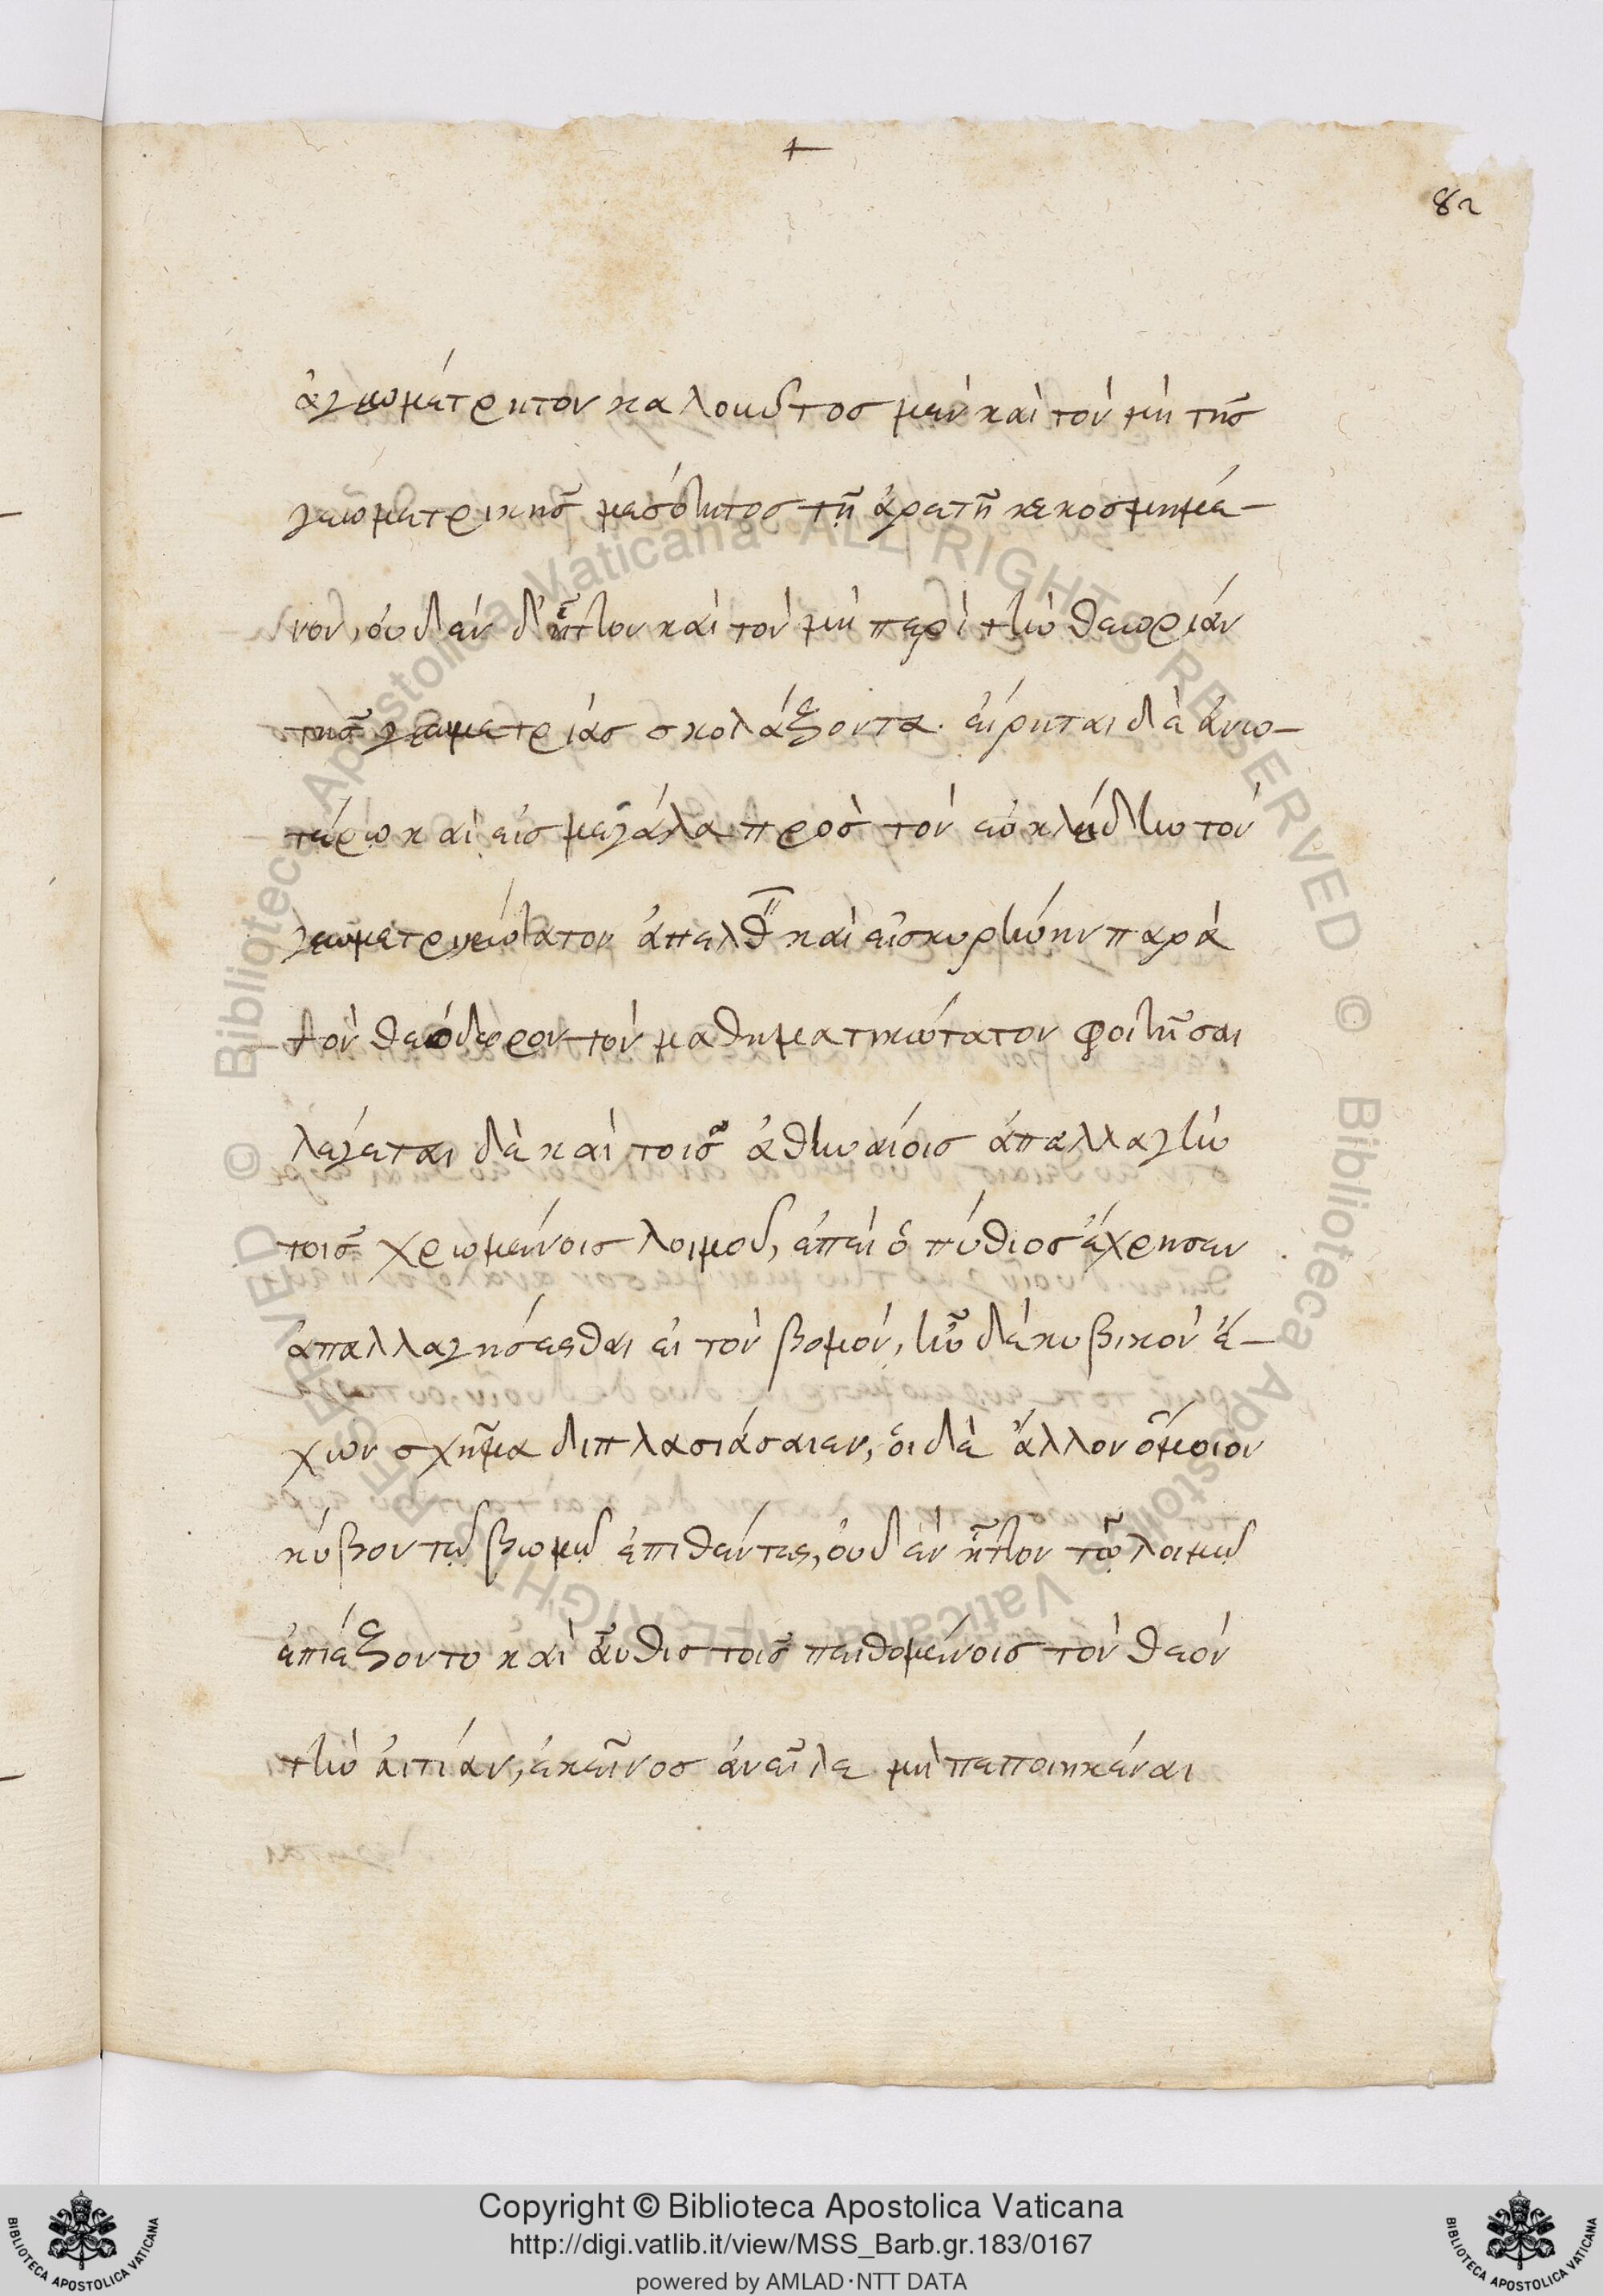 +
82
ἀγεωμέτρητον καλοῦντος μὲν καὶ τὸν μὴ τῆς
γεωμετρικῆς μεσότητος τῇ ἀρετῇ κεκοσμημέ-
νον, οὐδὲν δ' ἧττον καὶ τὸν μὴ περὶ τὴν θεωρίαν
τῆς γεωμετρίας σχολάζοντα. εἴρηται δὲ ἀνω-
τέρω καὶ εἰς μεγάλα πρὸς τὸν εὐκλείδην τὸν
γεωμετρικώτατον ἀπελθ καὶ εἰς κυρήνην παρὰ
τὸν θεόδωρον τὸν μαθηματικώτατον φοιτῆσαι
λέγεται δὲ καὶ τοῖς ἀθηναίοις ἀπαλλαγὴν
τοῖς χρωμένοις λοιμοῦ, ἐπεὶ ὁ πύθιος ἔχρησεν
ἀπαλλαγήσεσθαι εἰ τὸν βομὸν, ἦν δὲ κυβικὸν ἔ-
χων σχῆμα διπλασιάσαιεν, οἱ δὲ ἄλλον ὅμοιον
κύβον τῷ βωμῷ ἐπιθέντες, οὐδὲν ἧττον τῷ λοιμῷ
ἐπιέζοντο καὶ αὖθις τοῖς πειθομένοις τὸν θεὸν
τὴν αἰτίαν, ἐκεῖνος ἀνεῖλε μὴ πεποιηκέναι
Copyright © Biblioteca Apostolica Vaticana
http://digi.vatlib.it/view/MSS_Barb.gr.183/0167
powered by AMLAD·NTT DATA
BIBLIOTECA APOSTOLICA VATICANA
BIBLIOTECA APOSTOLICA VATICANA
© Biblioteca Apostolica Vaticana ALL RIGHTS RESERVED © Biblioteca Apostolica Vaticana ALL RIGHTS RESERVED